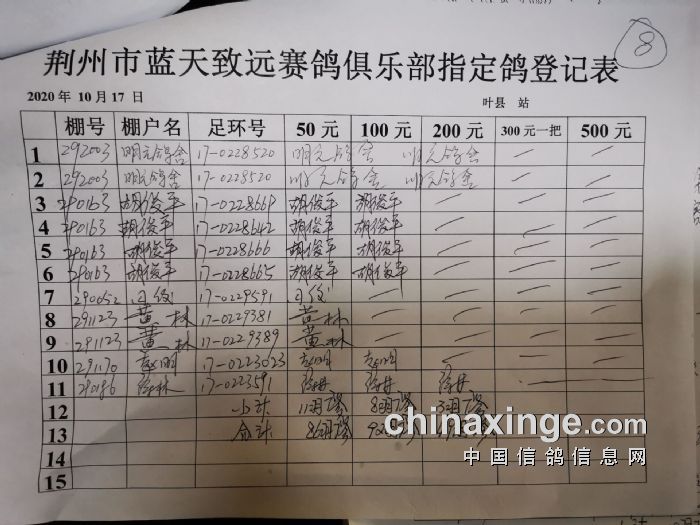 8
荆州市蓝天致远赛鸽俱乐部指定鸽登记表
2020 年 10 月 17 日 叶县 站
棚号 棚户名 足环号 50 元 100 元 200 元 300 元一把 500 元
1 292003 明元鸽舍 17-0228520 明元鸽舍 明元鸽舍 — —
2 292003 明元鸽舍 17-0228520 明元鸽舍 明元鸽舍 — —
3 290163 胡俊平 17-0228669 胡俊平 胡俊平 — — —
4 290163 胡俊平 17-0228642 胡俊平 胡俊平 — — —
5 290163 胡俊平 17-0228666 胡俊平 胡俊平 — — —
6 290163 胡俊平 17-0228665 胡俊平 胡俊平 — — —
7 290052 17-0229591 — — — —
8 291123 黄林 17-0229381 黄林 — — — —
9 291123 黄林 17-0229389 黄林 — — — —
10 291170 赵明 17-0223023 赵明 赵明 — — —
11 290186 徐林 17-0223591 — —
12 小计 11羽 8羽 3羽
13 合计
14
15
chinaxinge.com
中国信鸽信息网